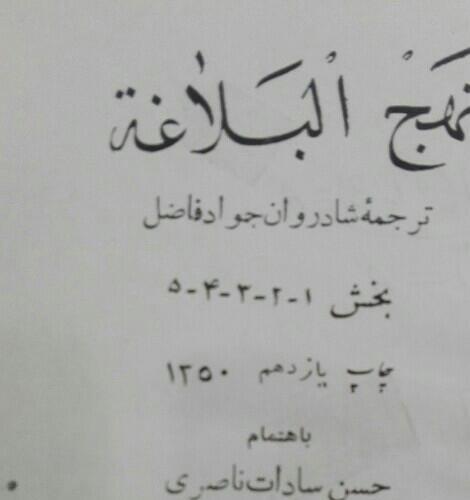 نهج البلاغة
ترجمهٔ شادروان جواد فاضل
بخش ۱-۲-۳-۴-۵
چاپ یازدهم ۱۳۵۰
باهتمام
حسن سادات ناصری